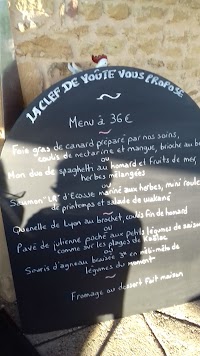 LA CLEF DE VOUTE VOUS PROPOSE
Menu à 36€
Foie gras de canard préparé par nos soins,
coulis de nectarine et mangue, brioche au be
ou
Mon duo de spaghetti au homard et fruits de mer,
herbes mélangées
ou
Saumon "LR" d'Ecosse mariné aux herbes, mini roule
de printemps et salade de wakamé
Quenelle de Lyon au brochet, coulis fin de homard
ou
Pavé de julienne poché aux petits légumes de saison
comme sur les plages de
ou
Souris d'agneau braisée 3h en
légumes du moment
Fromage ou dessert fait maison